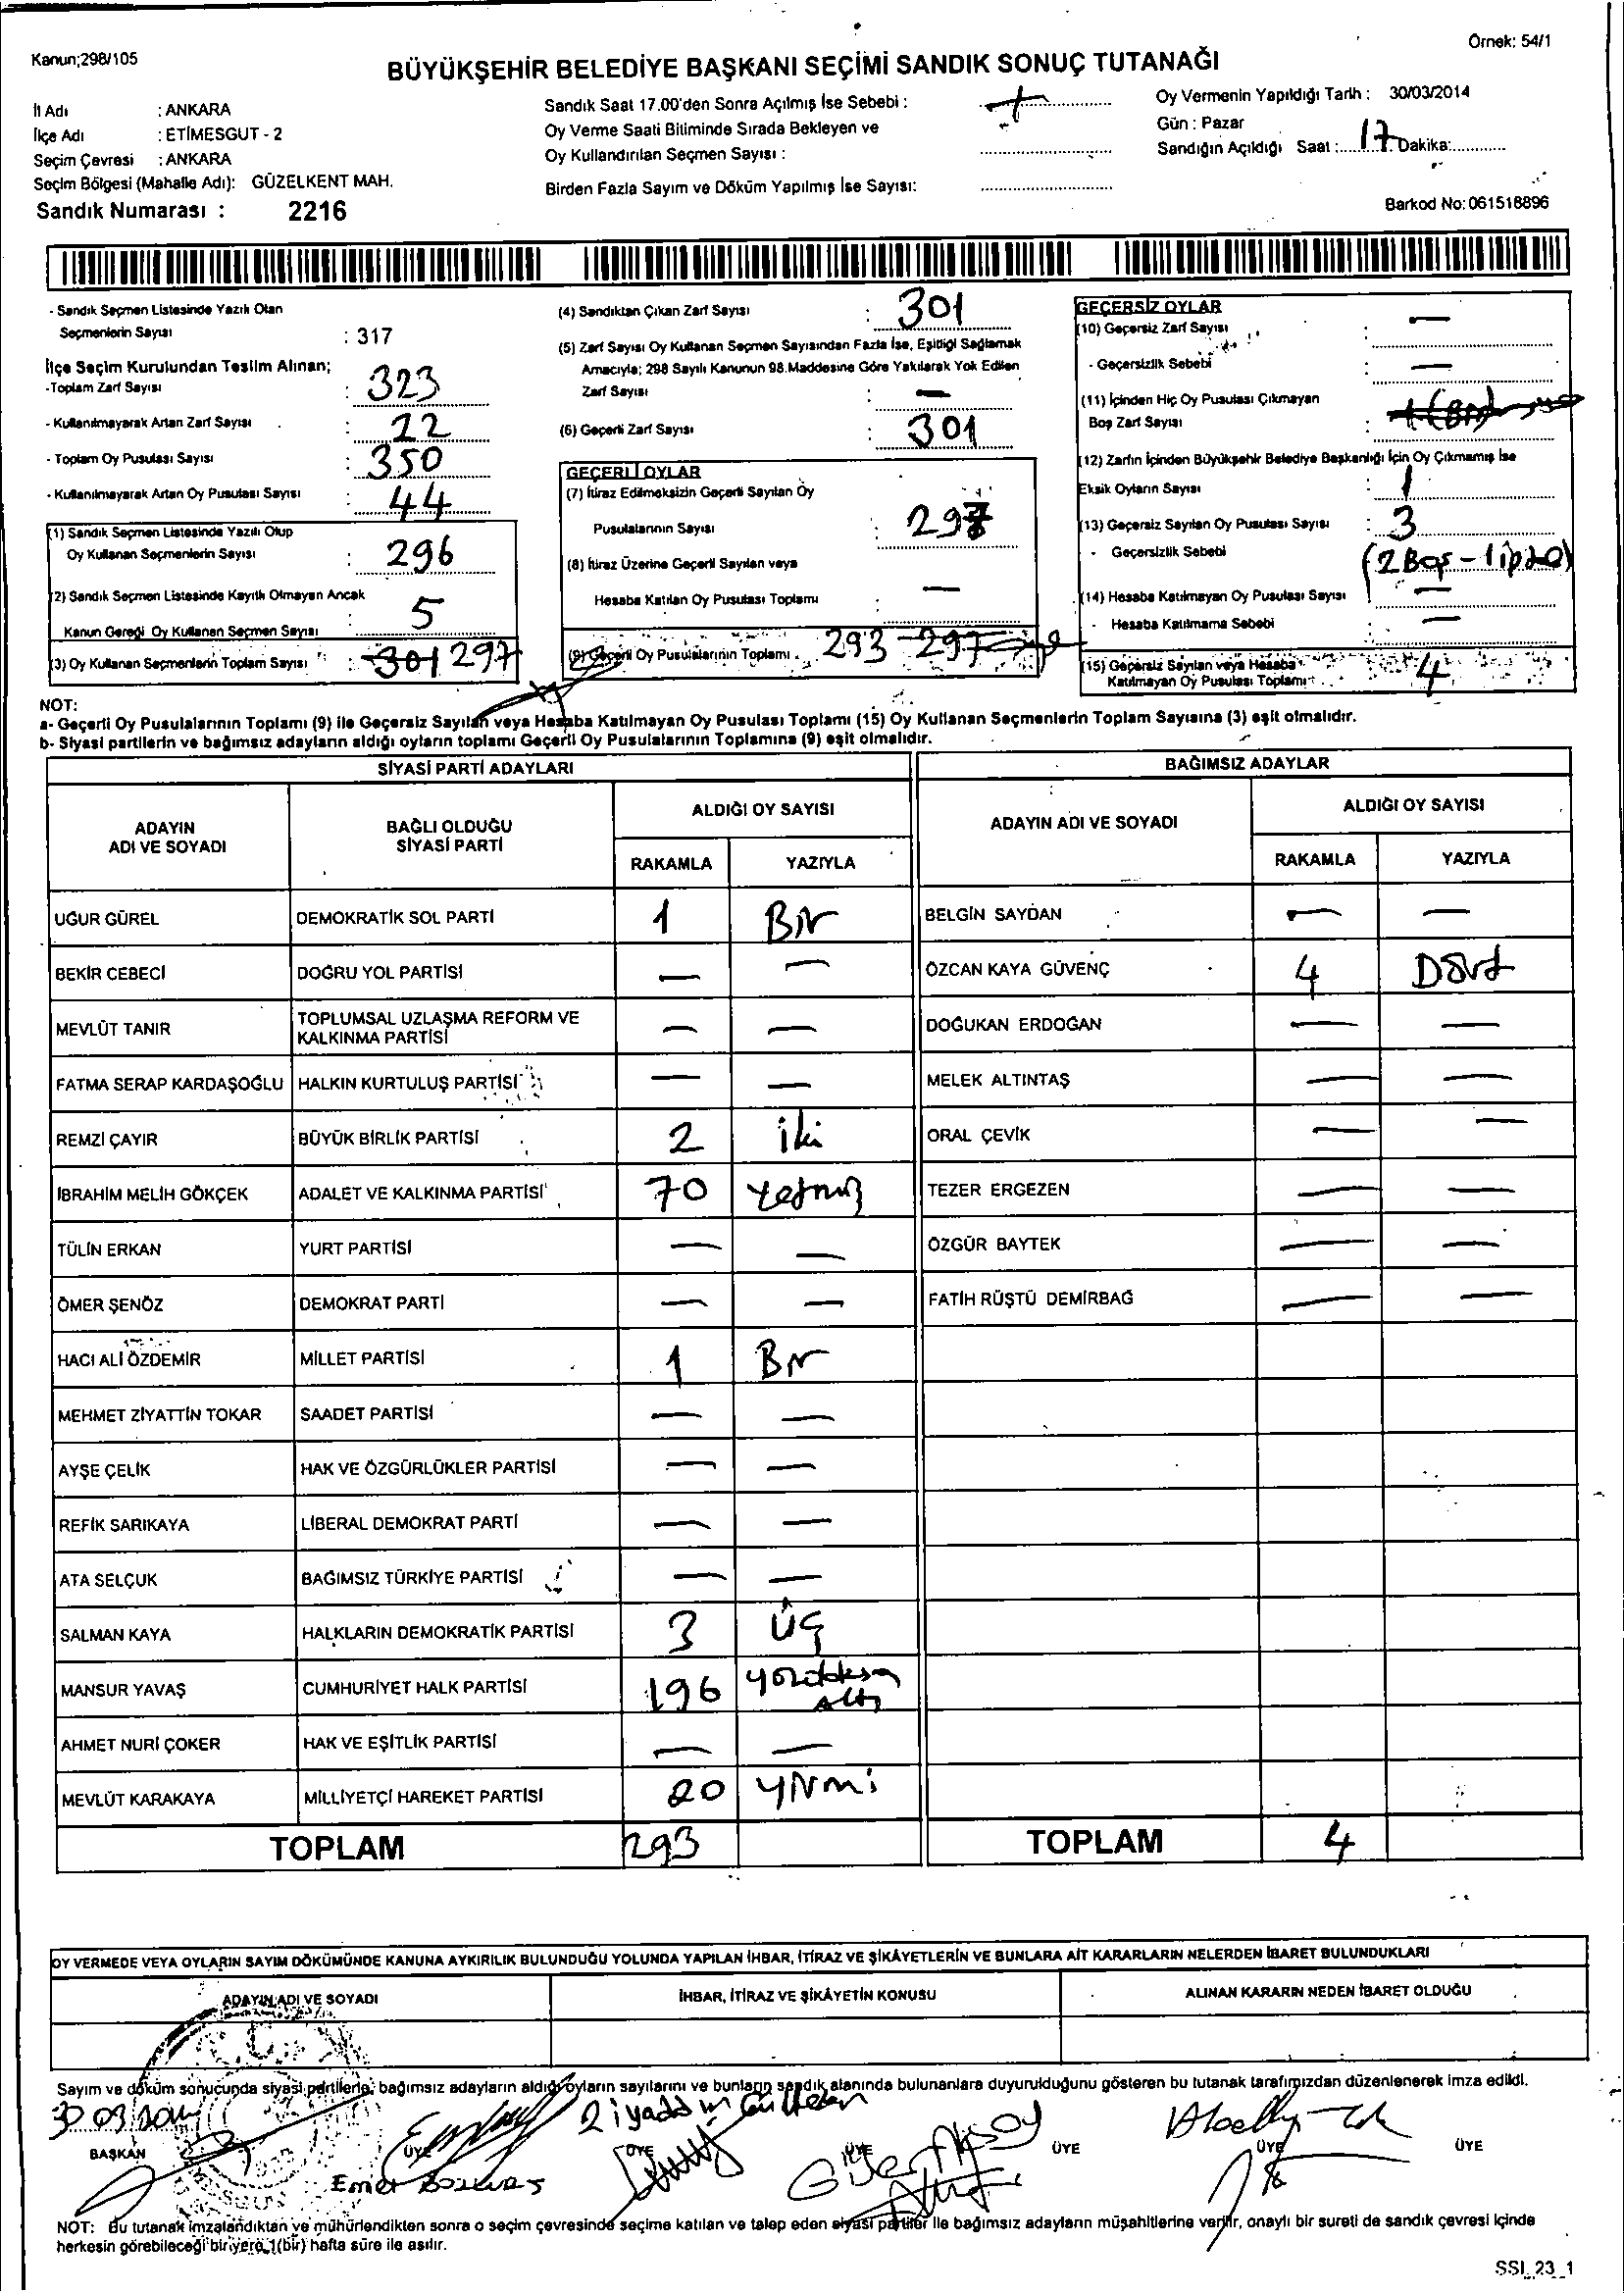 Kanun;298/105
Örnek: 54/1
BÜYÜKŞEHİR BELEDİYE BAŞKANI SEÇİMİ SANDIK SONUÇ TUTANAĞI
İl Adı : ANKARA
İlçe Adı : ETİMESGUT - 2
Seçim Çevresi : ANKARA
Seçim Bölgesi (Mahalle Adı): GÜZELKENT MAH.
Sandık Numarası : 2216
Sandık Saat 17.00'den Sonra Açılmış İse Sebebi :
Oy Verme Saati Bitiminde Sırada Bekleyen ve
Oy Kullandırılan Seçmen Sayısı :
Birden Fazla Sayım ve Döküm Yapılmış İse Sayısı:
Oy Vermenin Yapıldığı Tarih : 30/03/2014
Gün : Pazar
Sandığın Açıldığı Saat : 17 Dakika:
Barkod No: 061518896
- Sandık Seçmen Listesinde Yazılı Olan
Seçmenlerin Sayısı : 317
İlçe Seçim Kurulundan Teslim Alınan;
-Toplam Zarf Sayısı : 323
- Kullanılmayarak Artan Zarf Sayısı : 22
- Toplam Oy Pusulası Sayısı : 350
- Kullanılmayarak Artan Oy Pusulası Sayısı : 44
(1) Sandık Seçmen Listesinde Yazılı Olup
Oy Kullanan Seçmenlerin Sayısı : 296
(2) Sandık Seçmen Listesinde Kayıtlı Olmayan Ancak
Kanun Gereği Oy Kullanan Seçmen Sayısı : 5
(3) Oy Kullanan Seçmenlerin Toplam Sayısı : 301 297
(4) Sandıktan Çıkan Zarf Sayısı : 301
(5) Zarf Sayısı Oy Kullanan Seçmen Sayısından Fazla İse, Eşitliği Sağlamak
Amacıyla; 298 Sayılı Kanunun 98.Maddesine Göre Yakılarak Yok Edilen
Zarf Sayısı : —
(6) Geçerli Zarf Sayısı : 301
GEÇERLİ OYLAR
(7) İtiraz Edilmeksizin Geçerli Sayılan Oy
Pusulalarının Sayısı : 297
(8) İtiraz Üzerine Geçerli Sayılan veya
Hesaba Katılan Oy Pusulası Toplamı : —
(9) Geçerli Oy Pusulalarının Toplamı : 293 297
GEÇERSİZ OYLAR
(10) Geçersiz Zarf Sayısı : —
- Geçersizlik Sebebi : —
(11) İçinden Hiç Oy Pusulası Çıkmayan
Boş Zarf Sayısı :
(12) Zarfın İçinden Büyükşehir Belediye Başkanlığı İçin Oy Çıkmamış İse
Eksik Oyların Sayısı : 1
(13) Geçersiz Sayılan Oy Pusulası Sayısı : 3
- Geçersizlik Sebebi (2 Boş - 1 iptal)
(14) Hesaba Katılmayan Oy Pusulası Sayısı : —
- Hesaba Katılmama Sebebi : —
(15) Geçersiz Sayılan veya Hesaba
Katılmayan Oy Pusulası Toplamı : 4
NOT:
a- Geçerli Oy Pusulalarının Toplamı (9) ile Geçersiz Sayılan veya Hesaba Katılmayan Oy Pusulası Toplamı (15) Oy Kullanan Seçmenlerin Toplam Sayısına (3) eşit olmalıdır.
b- Siyasi partilerin ve bağımsız adayların aldığı oyların toplamı Geçerli Oy Pusulalarının Toplamına (9) eşit olmalıdır.
SİYASİ PARTİ ADAYLARI
ADAYIN
ADI VE SOYADI
BAĞLI OLDUĞU
SİYASİ PARTİ
ALDIĞI OY SAYISI
RAKAMLA YAZIYLA
UĞUR GÜREL DEMOKRATİK SOL PARTİ 1 Bir
BEKİR CEBECİ DOĞRU YOL PARTİSİ — —
MEVLÜT TANIR TOPLUMSAL UZLAŞMA REFORM VE
KALKINMA PARTİSİ — —
FATMA SERAP KARDAŞOĞLU HALKIN KURTULUŞ PARTİSİ — —
REMZİ ÇAYIR BÜYÜK BİRLİK PARTİSİ 2 iki
İBRAHİM MELİH GÖKÇEK ADALET VE KALKINMA PARTİSİ 70 Yetmiş
TÜLİN ERKAN YURT PARTİSİ — —
ÖMER ŞENÖZ DEMOKRAT PARTİ — —
HACI ALİ ÖZDEMİR MİLLET PARTİSİ 1 Bir
MEHMET ZİYATTİN TOKAR SAADET PARTİSİ — —
AYŞE ÇELİK HAK VE ÖZGÜRLÜKLER PARTİSİ — —
REFİK SARIKAYA LİBERAL DEMOKRAT PARTİ — —
ATA SELÇUK BAĞIMSIZ TÜRKİYE PARTİSİ — —
SALMAN KAYA HALKLARIN DEMOKRATİK PARTİSİ 3 ÜÇ
MANSUR YAVAŞ CUMHURİYET HALK PARTİSİ 196 yüzdoksan
Altı
AHMET NURİ ÇOKER HAK VE EŞİTLİK PARTİSİ — —
MEVLÜT KARAKAYA MİLLİYETÇİ HAREKET PARTİSİ 20 yirmi
TOPLAM 293
BAĞIMSIZ ADAYLAR
ADAYIN ADI VE SOYADI
ALDIĞI OY SAYISI
RAKAMLA YAZIYLA
BELGİN SAYDAN — —
ÖZCAN KAYA GÜVENÇ 4 Dört
DOĞUKAN ERDOĞAN — —
MELEK ALTINTAŞ — —
ORAL ÇEVİK — —
TEZER ERGEZEN — —
ÖZGÜR BAYTEK — —
FATİH RÜŞTÜ DEMİRBAĞ — —
TOPLAM 4
OY VERMEDE VEYA OYLARIN SAYIM DÖKÜMÜNDE KANUNA AYKIRILIK BULUNDUĞU YOLUNDA YAPILAN İHBAR, İTİRAZ VE ŞİKÂYETLERİN VE BUNLARA AİT KARARLARIN NELERDEN İBARET BULUNDUKLARI
ADAYIN ADI VE SOYADI İHBAR, İTİRAZ VE ŞİKÂYETİN KONUSU ALINAN KARARIN NEDEN İBARET OLDUĞU
Sayım ve döküm sonucunda siyasi partilerle, bağımsız adayların aldığı oyların sayılarını ve bunların sandık alanında bulunanlara duyurulduğunu gösteren bu tutanak tarafımızdan düzenlenerek imza edildi.
30 03 2014
BAŞKAN ÜYE ÜYE ÜYE ÜYE ÜYE ÜYE
NOT: Bu tutanak imzalandıktan ve mühürlendikten sonra o seçim çevresinde seçime katılan ve talep eden siyasi partiler ile bağımsız adayların müşahitlerine verilir, onaylı bir sureti de sandık çevresi içinde
herkesin görebileceği bir yere 1(bir) hafta süre ile asılır.
SSI_23_1